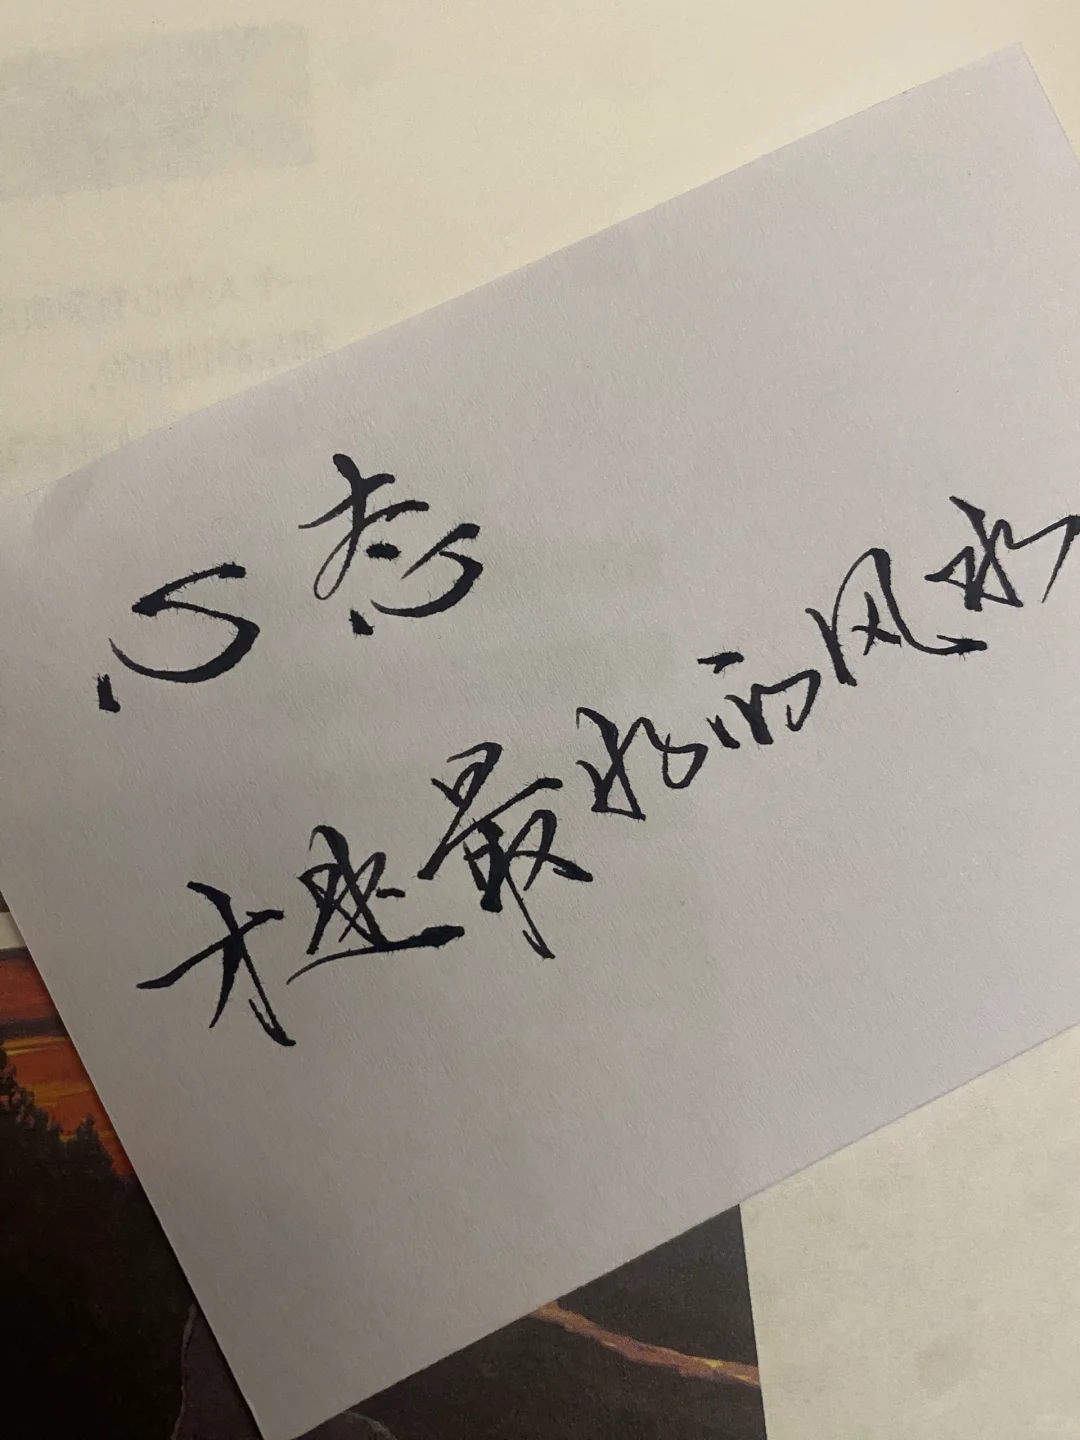 心态
才是最好的风水